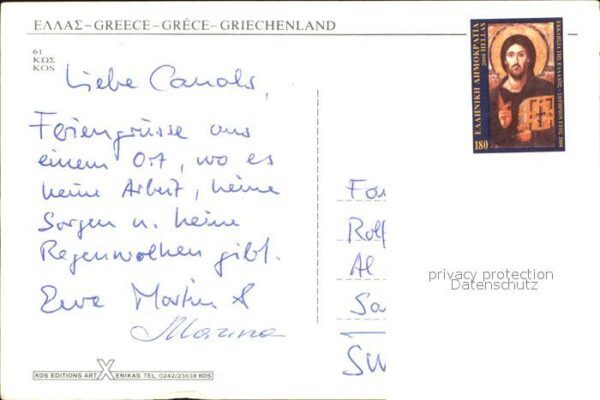 ΕΛΛΑΣ–GREECE–GRÈCE–GRIECHENLAND
61
ΚΩΣ
KOS
Liebe Canals,
Feriengrüsse aus
einem Ort, wo es
keine Arbeit, keine
Sorgen u. keine
Regenwolken gibt.
Eure Martin &
Marina
KOS EDITIONS ART XENIKAS TEL: 0242/23638 KOS
ΕΛΛΗΝΙΚΗ ΔΗΜΟΚΡΑΤΙΑ
2000 HELLAS
180
Fa
Rolf
Al
Sa
SW
privacy protection
Datenschutz